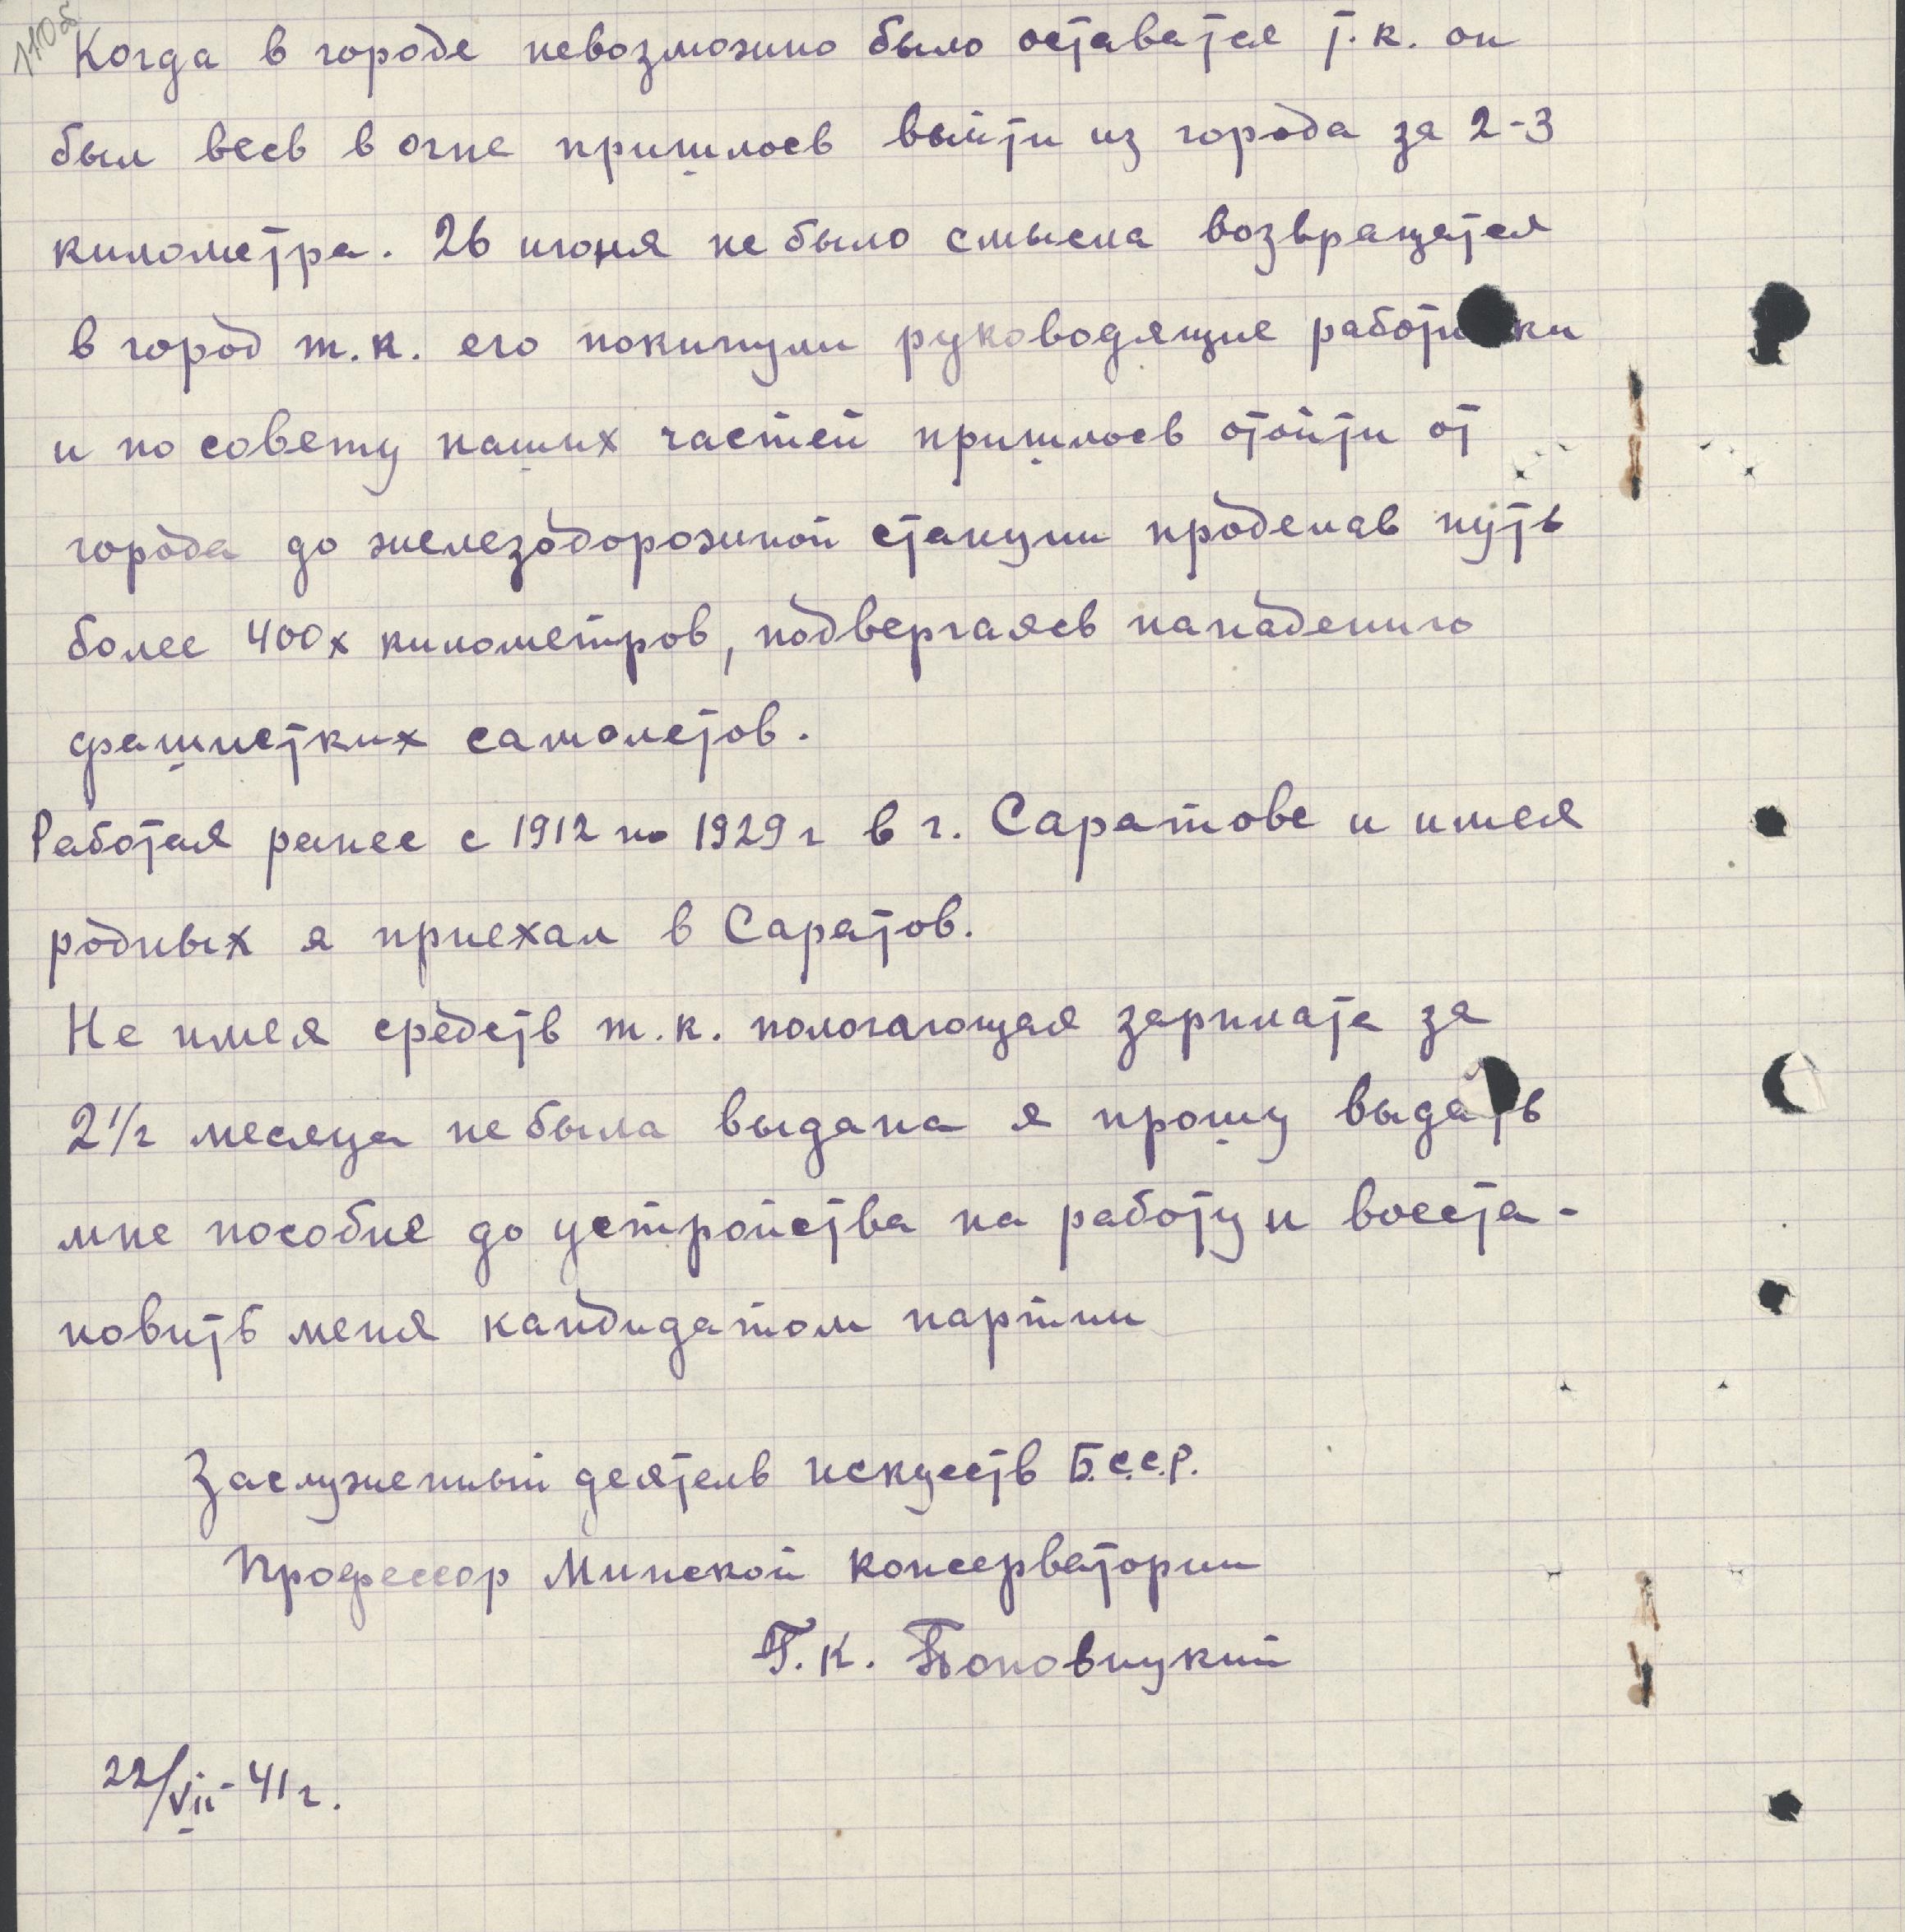 110об
Когда в городе невозможно было оставатся т.к. он
был весь в огне пришлось выйти из города за 2-3
километра. 26 июня не было смысла возвращатся
в город т.к. его покинули руководящие работники
и по совету наших частей пришлось отойти от
города до железодорожной станции проделав путь
более 400х километров, подвергаясь нападению
фашистких самолетов.
Работая ранее с 1912 по 1929 г в г. Саратове и имея
родных я приехал в Саратов.
Не имея средств т.к. пологающая зарплата за
2 1/2 месяца не была выдана я прошу выдать
мне пособие до устройства на работу и восста-
новить меня кандидатом партии
Заслуженный деятель искусств Б.С.С.Р.
Профессор Минской консерватории
Г.К.
22/VII-41 г.